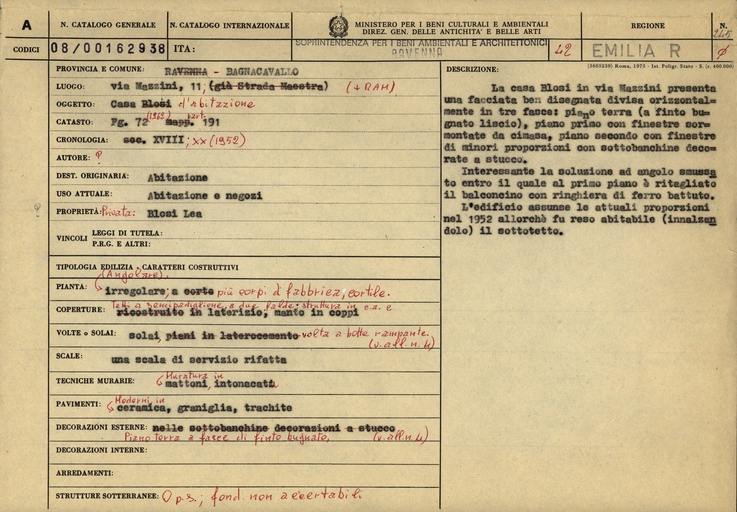 A
N. CATALOGO GENERALE
N. CATALOGO INTERNAZIONALE
MINISTERO PER I BENI CULTURALI E AMBIENTALI
DIREZ. GEN. DELLE ANTICHITA' E BELLE ARTI
REGIONE
N.
245
CODICI
08/00162938
ITA:
SOPRINTENDENZA PER I BENI AMBIENTALI E ARCHITETTONICI
RAVENNA
42
EMILIA R
PROVINCIA E COMUNE: RAVENNA - BAGNACAVALLO
LUOGO: via Mazzini, 11; (già Strada Maestra) (+ RAM)
OGGETTO: Casa Blosi d'abitazione
CATASTO: Fg. 72 (1962) mapp. part. 191
CRONOLOGIA: sec. XVIII; XX (1952)
AUTORE: ?
DEST. ORIGINARIA: Abitazione
USO ATTUALE: Abitazione e negozi
PROPRIETÀ: Privata: Blosi Lea
VINCOLI
LEGGI DI TUTELA:
P.R.G. E ALTRI:
TIPOLOGIA EDILIZIA - CARATTERI COSTRUTTIVI
(Angolare).
PIANTA: irregolare; a corte più corpi di fabbrica, cortile.
Tetti a semipadiglione, a due falde: struttura in c.a. e
COPERTURE: ricostruito in laterizio, manto in coppi
VOLTE o SOLAI: solai, piani in laterocemento volta a botte rampante.
(v. all. n. 4)
SCALE: una scala di servizio rifatta
Muratura in
TECNICHE MURARIE: mattoni, intonacati
Moderni in
PAVIMENTI: ceramica, graniglia, trachite
DECORAZIONI ESTERNE: nelle sottobanchine decorazioni a stucco
Piano terra a fasce di finto bugnato. (v. all. n. 4)
DECORAZIONI INTERNE:
ARREDAMENTI:
STRUTTURE SOTTERRANEE: O p.s.; fond. non accertabili
(3603239) Roma, 1975 - Ist. Poligr. Stato - S. (c. 400.000)
DESCRIZIONE:
La casa Blosi in via Mazzini presenta
una facciata ben disegnata divisa orizzontal-
mente in tre fasce: piano terra (a finto bu-
gnato liscio), piano primo con finestre sor-
montate da cimasa, piano secondo con finestre
di minori proporzioni con sottobanchine deco-
rate a stucco.
Interessante la soluzione ad angolo smussa
to entro il quale al primo piano è ritagliato
il balconcino con ringhiera di ferro battuto.
L'edificio assunse le attuali proporzioni
nel 1952 allorchè fu reso abitabile (innalzan
dolo) il sottotetto.